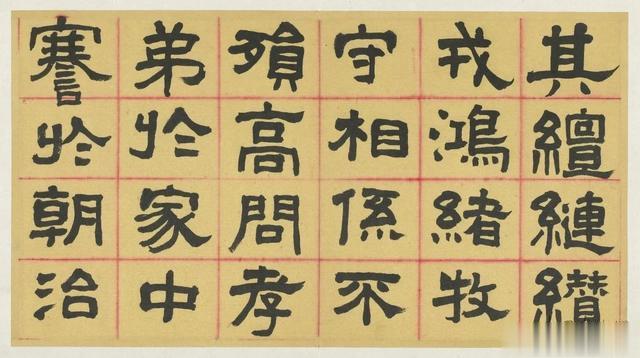 其繵縺纘
戎鴻緒牧
守相係不
殞高問孝
弟於家中
謇於朝治